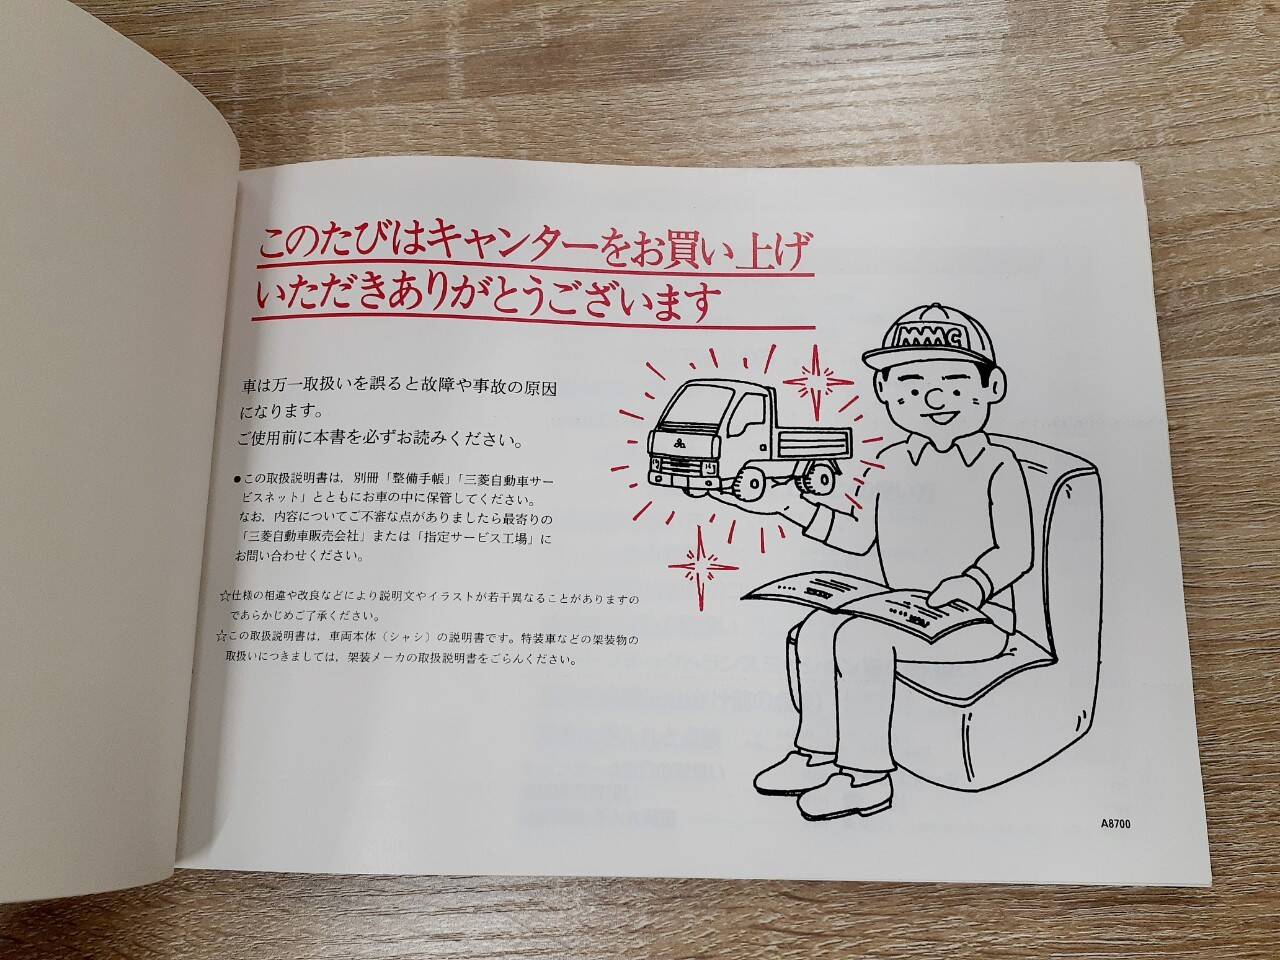 このたびはキャンターをお買い上げ
いただきありがとうございます
車は万一取扱いを誤ると故障や事故の原因
になります。
ご使用前に本書を必ずお読みください。
●この取扱説明書は，別冊「整備手帳」「三菱自動車サー
ビスネット」とともにお車の中に保管してください。
なお，内容についてご不審な点がありましたら最寄りの
「三菱自動車販売会社」または「指定サービス工場」に
お問い合わせください。
☆仕様の相違や改良などにより説明文やイラストが若干異なることがありますの
であらかじめご了承ください。
☆この取扱説明書は，車両本体（シャシ）の説明書です。特装車などの架装物の
取扱いにつきましては，架装メーカの取扱説明書をごらんください。
MMC
A8700